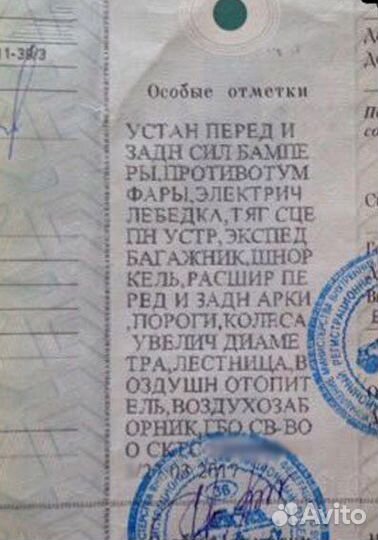 11-39/3
Особые отметки
УСТАН ПЕРЕД И
ЗАДН СИЛ БАМПЕ
РЫ,ПРОТИВОТУМ
ФАРЫ,ЭЛЕКТРИЧ
ЛЕБЕДКА,ТЯГ СЦЕ
ПН УСТР,ЭКСПЕД
БАГАЖНИК,ШНОР
КЕЛЬ,РАСШИР ПЕ
РЕД И ЗАДН АРКИ
,ПОРОГИ,КОЛЕСА
УВЕЛИЧ ДИАМЕ
ТРА,ЛЕСТНИЦА,В
ОЗДУШН ОТОПИТ
ЕЛЬ,ВОЗДУХОЗАБ
ОРНИК,ГБО,СВ-ВО
О СКТС
Avito